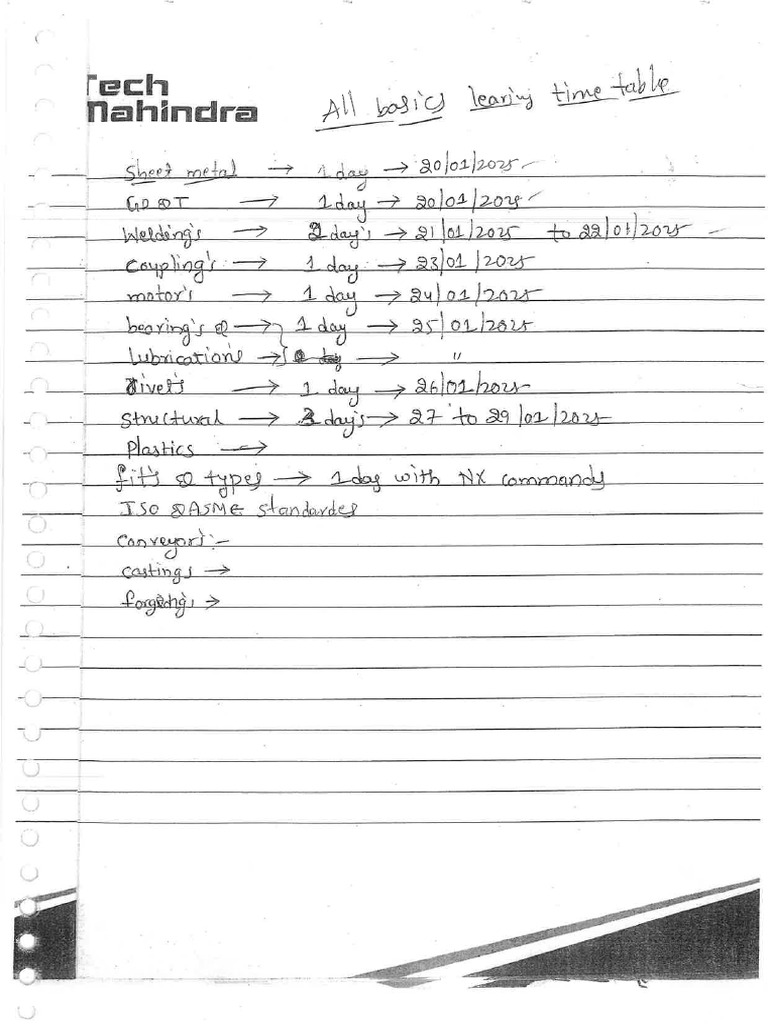 Tech
Mahindra
All basics learing time table
Sheet metal → 1 day → 20/01/2025 ✓
GD&T → 1 day → 20/01/2025 ✓
Welding's → 2 day's → 21/01/2025 to 22/01/2025 ✓
Coupling's → 1 day → 23/01/2025
motor's → 1 day → 24/01/2025
bearing's & → 1 day → 25/01/2025
Lubrication's → → "
Rivet's → 1 day → 26/01/2025
Structural → 3 day's → 27 to 29/01/2025
Plastics →
fit's & types → 1 day with NX commands
ISO & ASME standardes
Conveyor's :-
Castings →
forging's →